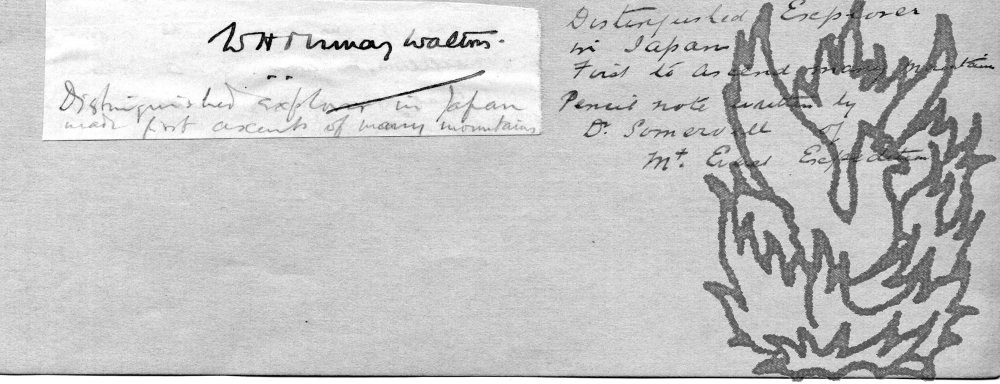 W H Murray Walton.
Distinguished explorer in Japan
made first ascents of many mountains
Distinguished Explorer
in Japan
First to ascend many mountains
Pencil note written by
Dr. Somervell of
Mt. Everest Expedition